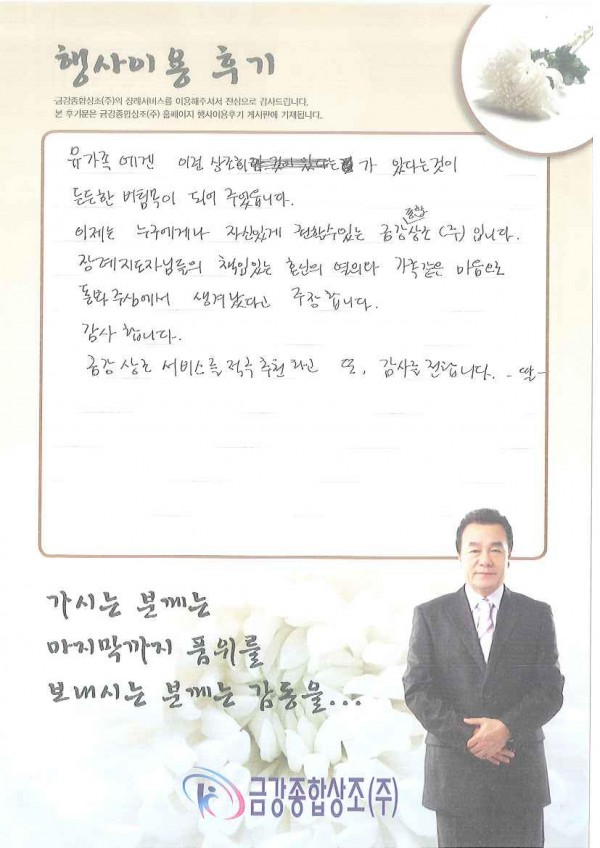 행사이용 후기
금강종합상조(주)의 장례서비스를 이용해주셔서 진심으로 감사드립니다.
본 후기문은 금강종합상조(주) 홈페이지 행사이용후기 게시판에 기재됩니다.
유가족에겐 이런 상조회가 있다는것이
든든한 버팀목이 되어 주었읍니다.
이제는 누구에게나 자신있게 권할수있는 금강종합상조(주)입니다.
장례지도자님들의 책임있는 헌신의 열의와 가족같은 마음으로
돌봐주심에서 생겨났다고 주장합니다.
감사합니다.
금강상조 서비스를 적극추천하고 또, 감사를 전합니다. - 딸 -
가시는 분께는
마지막까지 품위를
보내시는 분께는 감동을...
금강종합상조(주)